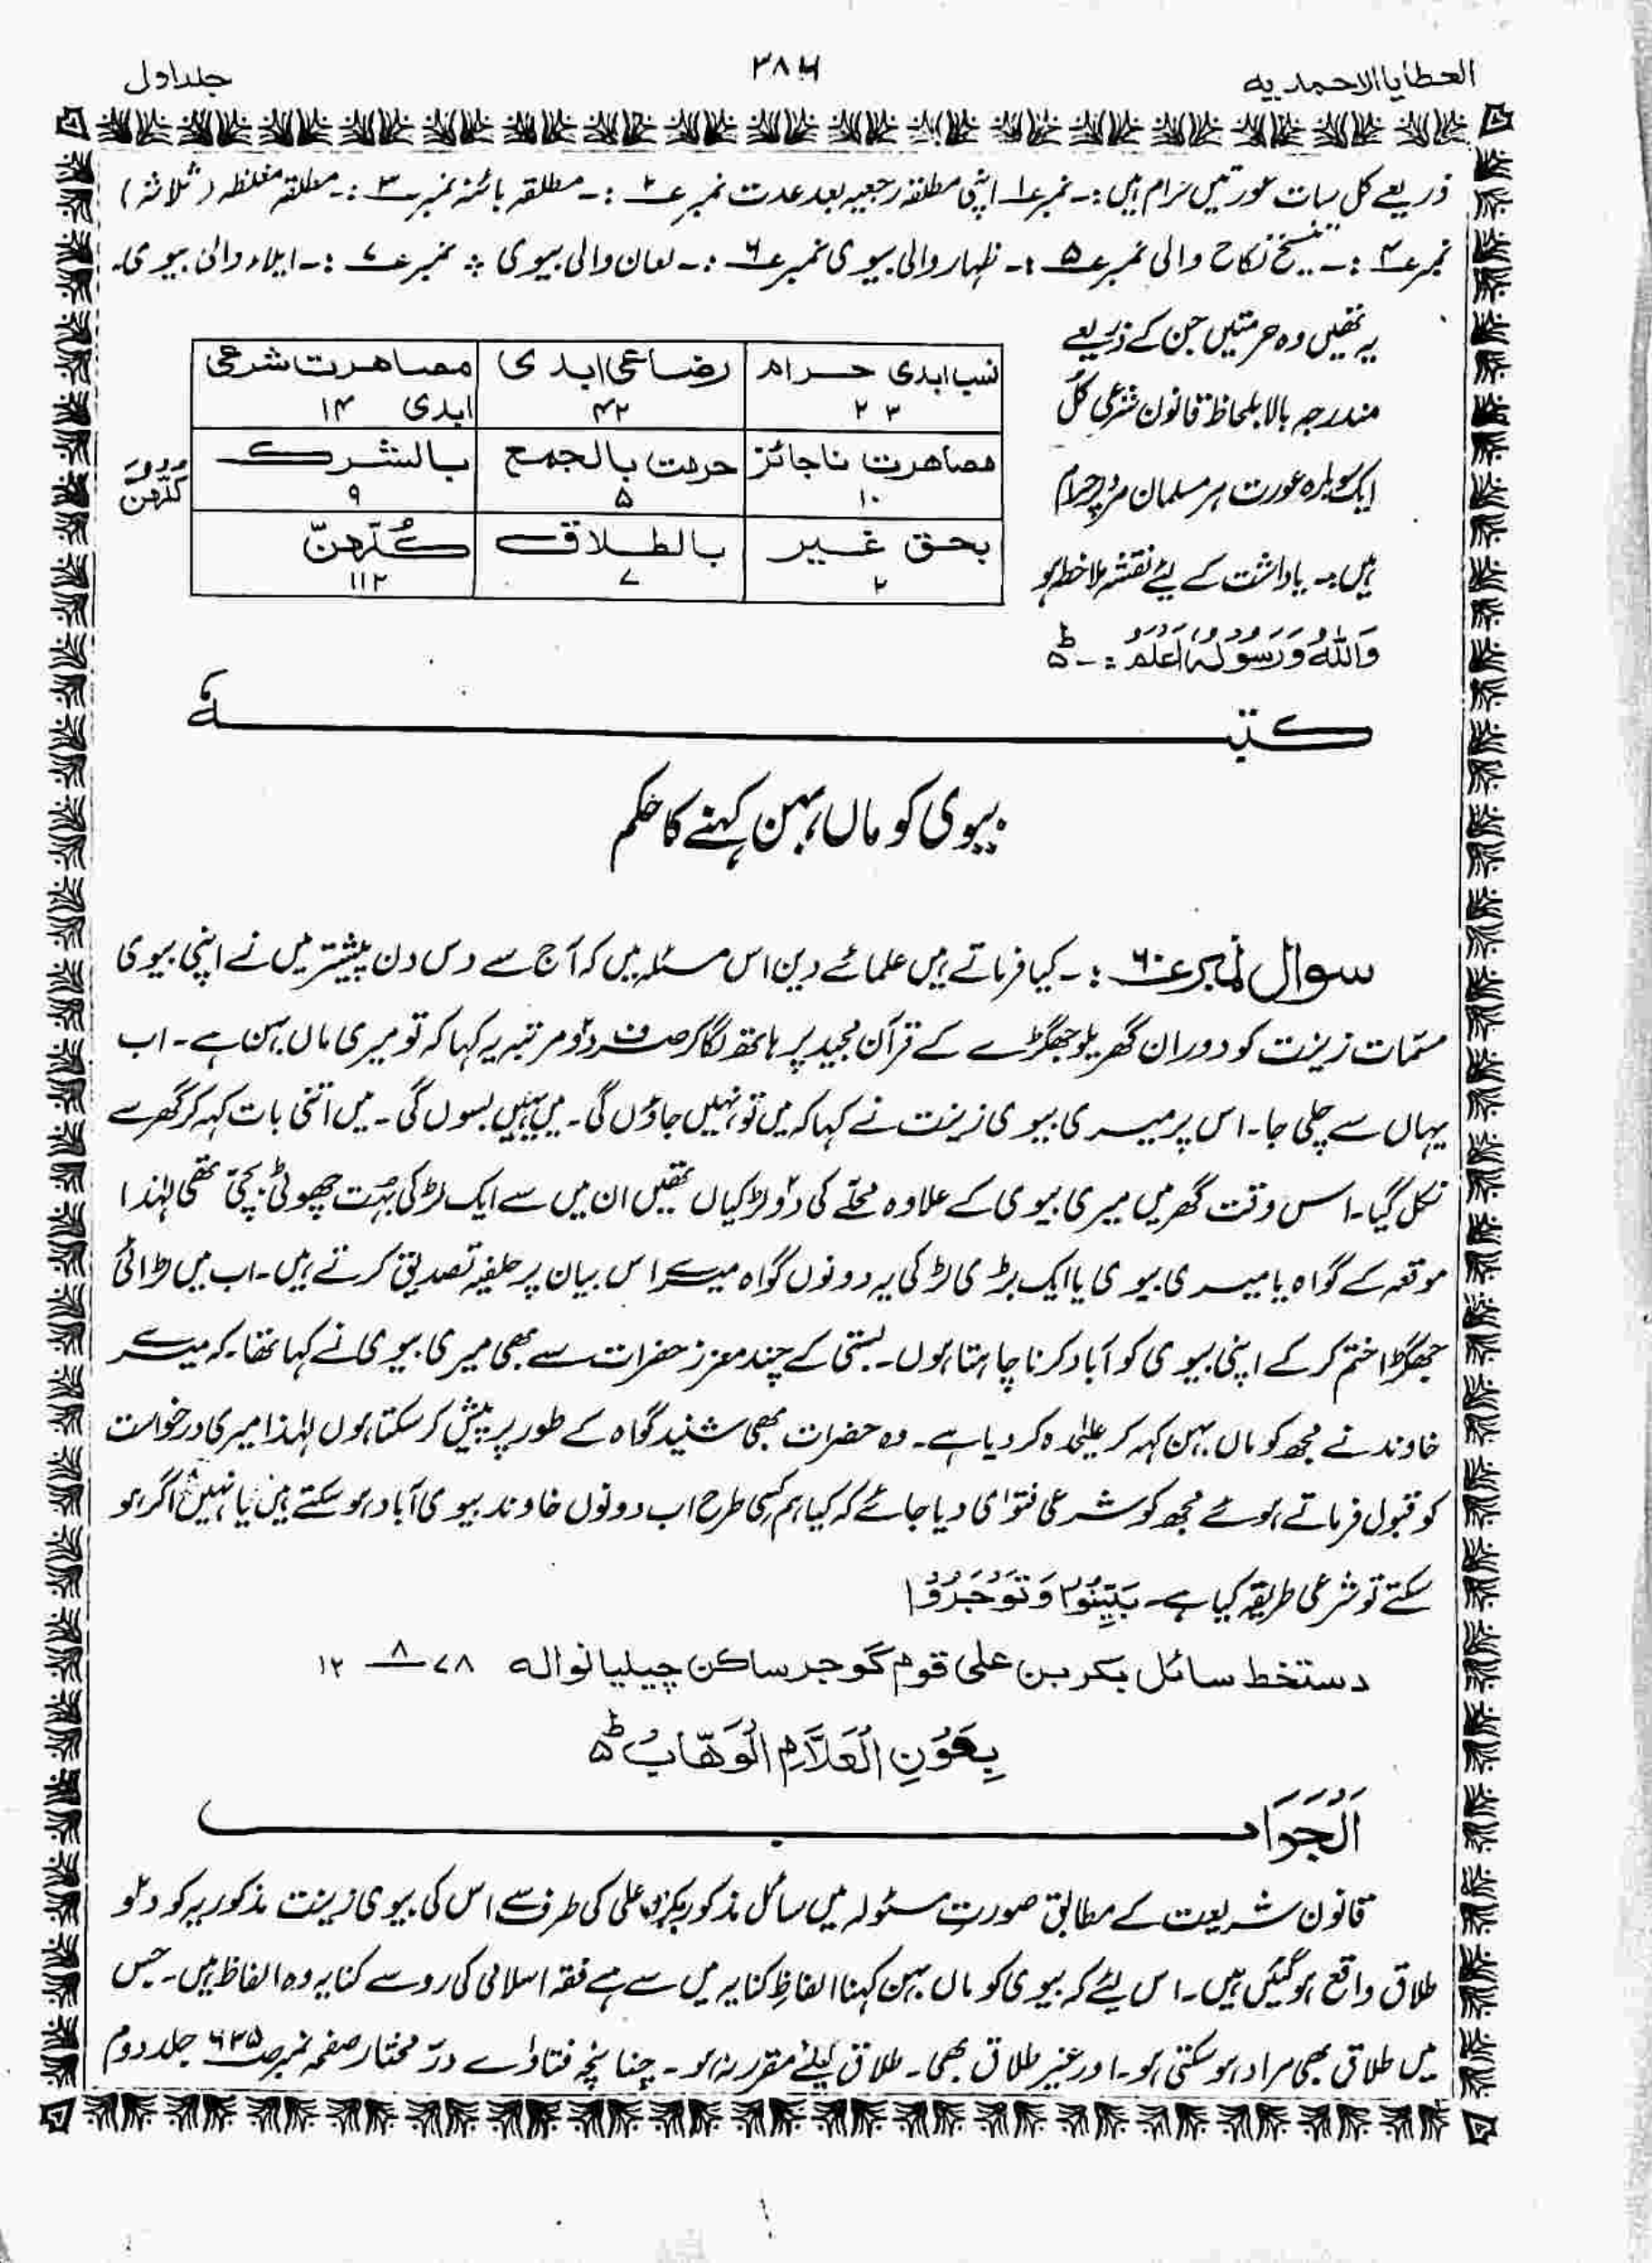 العطایا الاحمدیہ ۳۸۶ جلد اول
ذریعے کل سات عورتیں حرام ہیں :۔ نمبر ۱ اپنی مطلقہ رجعیہ بعد عدت نمبر ۲ :۔ مطلقہ بائنہ نمبر ۳ :۔ مطلقہ مغلظہ (ثلاثہ)
نمبر ۴ :۔ تنسیخ نکاح والی نمبر ۵ :۔ ظہار والی بیوی نمبر ۶ :۔ لعان والی بیوی ؞ نمبر ۷ :۔ ایلاء والی بیوی۔
یہ تھیں وہ حرمتیں جن کے ذریعے
مندرجہ بالا بلحاظ قانون شرعی کل
ایک سو بارہ عورت ہر مسلمان مرد پر حرام
ہیں ؞ یاداشت کے لئے نقشہ ملاحظہ ہو
وَاللّٰہُ وَرَسُوْلُہٗ اَعْلَمُ :۔ ۵ؕ
نسب ابدی حرام ۲۳ رضاعی ابدی ۴۲ مصاھرت شرعی ابدی ۱۴
مصاھرت ناجائز ۱۰ حرمت بالجمع ۵ بالشرک ۹
بحق غیر ۲ بالطلاق ۷ کُلّھنّ ۱۱۲
کلّھن
کتبہٗ
بیوی کو ماں بہن کہنے کا حکم
سوال نمبر ۶۰ :۔ کیا فرماتے ہیں علمائے دین اس مسئلہ میں کہ آج سے دس دن پیشتر میں نے اپنی بیوی
مسمّات زینت کو دوران گھریلو جھگڑے کے قرآن مجید پر ہاتھ لگا کر صرف دو مرتبہ یہ کہا کہ تو میری ماں بہن ہے۔ اب
یہاں سے چلی جا۔ اس پر میری بیوی زینت نے کہا کہ میں تو نہیں جاؤں گی۔ میں یہیں بسوں گی۔ میں اتنی بات کہہ کر گھر سے
نکل گیا۔ اس وقت گھر میں میری بیوی کے علاوہ محلّے کی دو لڑکیاں تھیں ان میں سے ایک لڑکی بہت چھوٹی بچّی تھی لہٰذا
موقعہ کے گواہ یا میری بیوی یا ایک بڑی لڑکی یہ دونوں گواہ میرے اس بیان پر حلفیہ تصدیق کرتے ہیں۔ اب میں لڑائی
جھگڑا ختم کر کے اپنی بیوی کو آباد کرنا چاہتا ہوں۔ بستی کے چند معزز حضرات سے بھی میری بیوی نے کہا تھا۔ کہ میرے
خاوند نے مجھ کو ماں بہن کہہ کر علیٰحدہ کر دیا ہے۔ وہ حضرات بھی شنید گواہ کے طور پر پیش کر سکتا ہوں لہٰذا میری درخواست
کو قبول فرماتے ہوئے مجھ کو شرعی فتوٰی دیا جائے کہ کیا ہم کسی طرح اب دونوں خاوند بیوی آباد ہو سکتے ہیں یا نہیں اگر ہو
سکتے تو شرعی طریقہ کیا ہے۔ بَیِّنُوْا وَتُوْجَرُوْا
دستخط سائل بکر بن علی قوم گوجر ساکن چیلیانوالہ ۱۲ ۸ ۷۸
بِعَوْنِ الْعَلَّامِ الْوَھَّابُ ۵ؕ
اَلْجَوَابــ
قانون شریعت کے مطابق صورتِ مسئولہ میں سائل مذکور بکر ولد علی کی طرف سے اس کی بیوی زینت مذکوریہ کو دو
طلاق واقع ہو گئیں ہیں۔ اس لئے کہ بیوی کو ماں بہن کہنا الفاظِ کنایہ میں سے ہے فقہ اسلامی کی رو سے کنایہ وہ الفاظ ہیں۔ جس
میں طلاق بھی مراد ہو سکتی ہو۔ اور غیر طلاق بھی۔ طلاق کیلئے مقرر نہ ہو۔ چنانچہ فتاوٰے درّ مختار صفحہ نمبر ص۶۳۵ جلد دوم